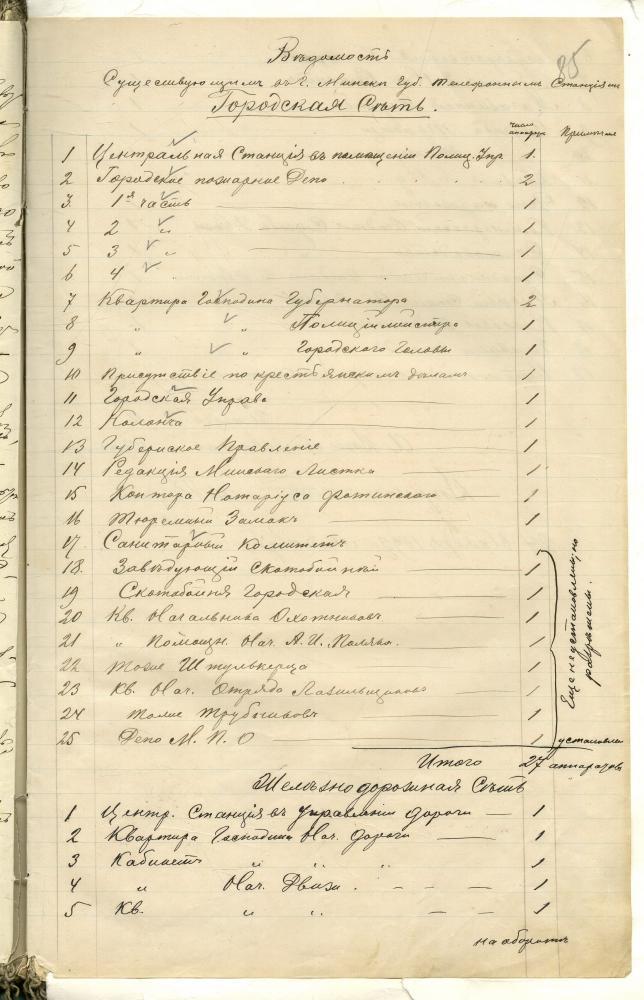 85
Вѣдомость
Существующимъ въ г. Минскѣ Губ. телефоннымъ Станціямъ
Городская Сѣть.
число аппарат. Примѣчаніе
1 Центральная Станція въ помѣщеніи Полиц. Упр 1.
2 Городское пожарное Депо 2
3. 1я часть 1
4 2 " 1
5 3 " 1
6 4 " 1
7 Квартира Господина Губернатора 2
8 " " Полиціймейстера 1
9 " " Городского Головы 1
10 Присутствіе по крестьянскимъ дѣламъ 1
11 Городская Управа 1
12 Каланча 1
13 Губернское Правленіе 1
14 Редакція Минскаго Листка 1
15 Контора Нотаріуса Фотинскаго 1
16 Тюремный Замокъ 1
17. Санитарный Комитетъ
18. Завѣдующій Скотобойней 1
19 Скотобойня Городская 1
20 Кв. Начальника Охотниковъ 1
21 " Помощн. Нач. А. И. Поляка. 1
22 Тоже Штулькерца 1
23 Кв. Нач. Отряда 1
24 Тоже Трубниковъ 1
25 Депо М. П. О 1 установлен
Еще не установлены, но разрѣшены.
Итого 27 аппаратовъ
Желѣзнодорожная Сѣть
1 Центр. Станція въ Управленіи дороги — 1
2 Квартира Господина Нач. дороги — 1
3 Кабинетъ " " " 1
4 " Нач. Движ. — — — 1
5 Кв. " " — — 1
на оборотѣ